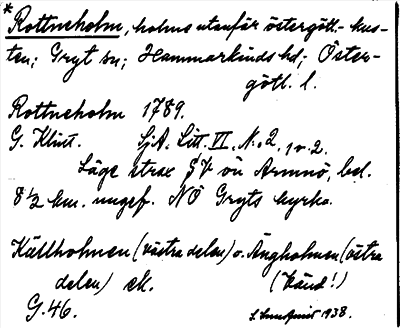 * Rottneholm, holme utanför östergötl.- kus-
ten; Gryt sn; Hammarkinds hd; Öster-
götl. l.
Rottneholm 1789.
G. Klint. SjA. Litt. VI. N. 2, 1 o. 2.
Läge strax SV om Armnö, bel.
8 1/2 km. ungef. NÖ Gryts kyrka.
Källholmen (västra delen) o. Ängholmen (östra
delen) ek. (känd!)
G. 46. 1938.